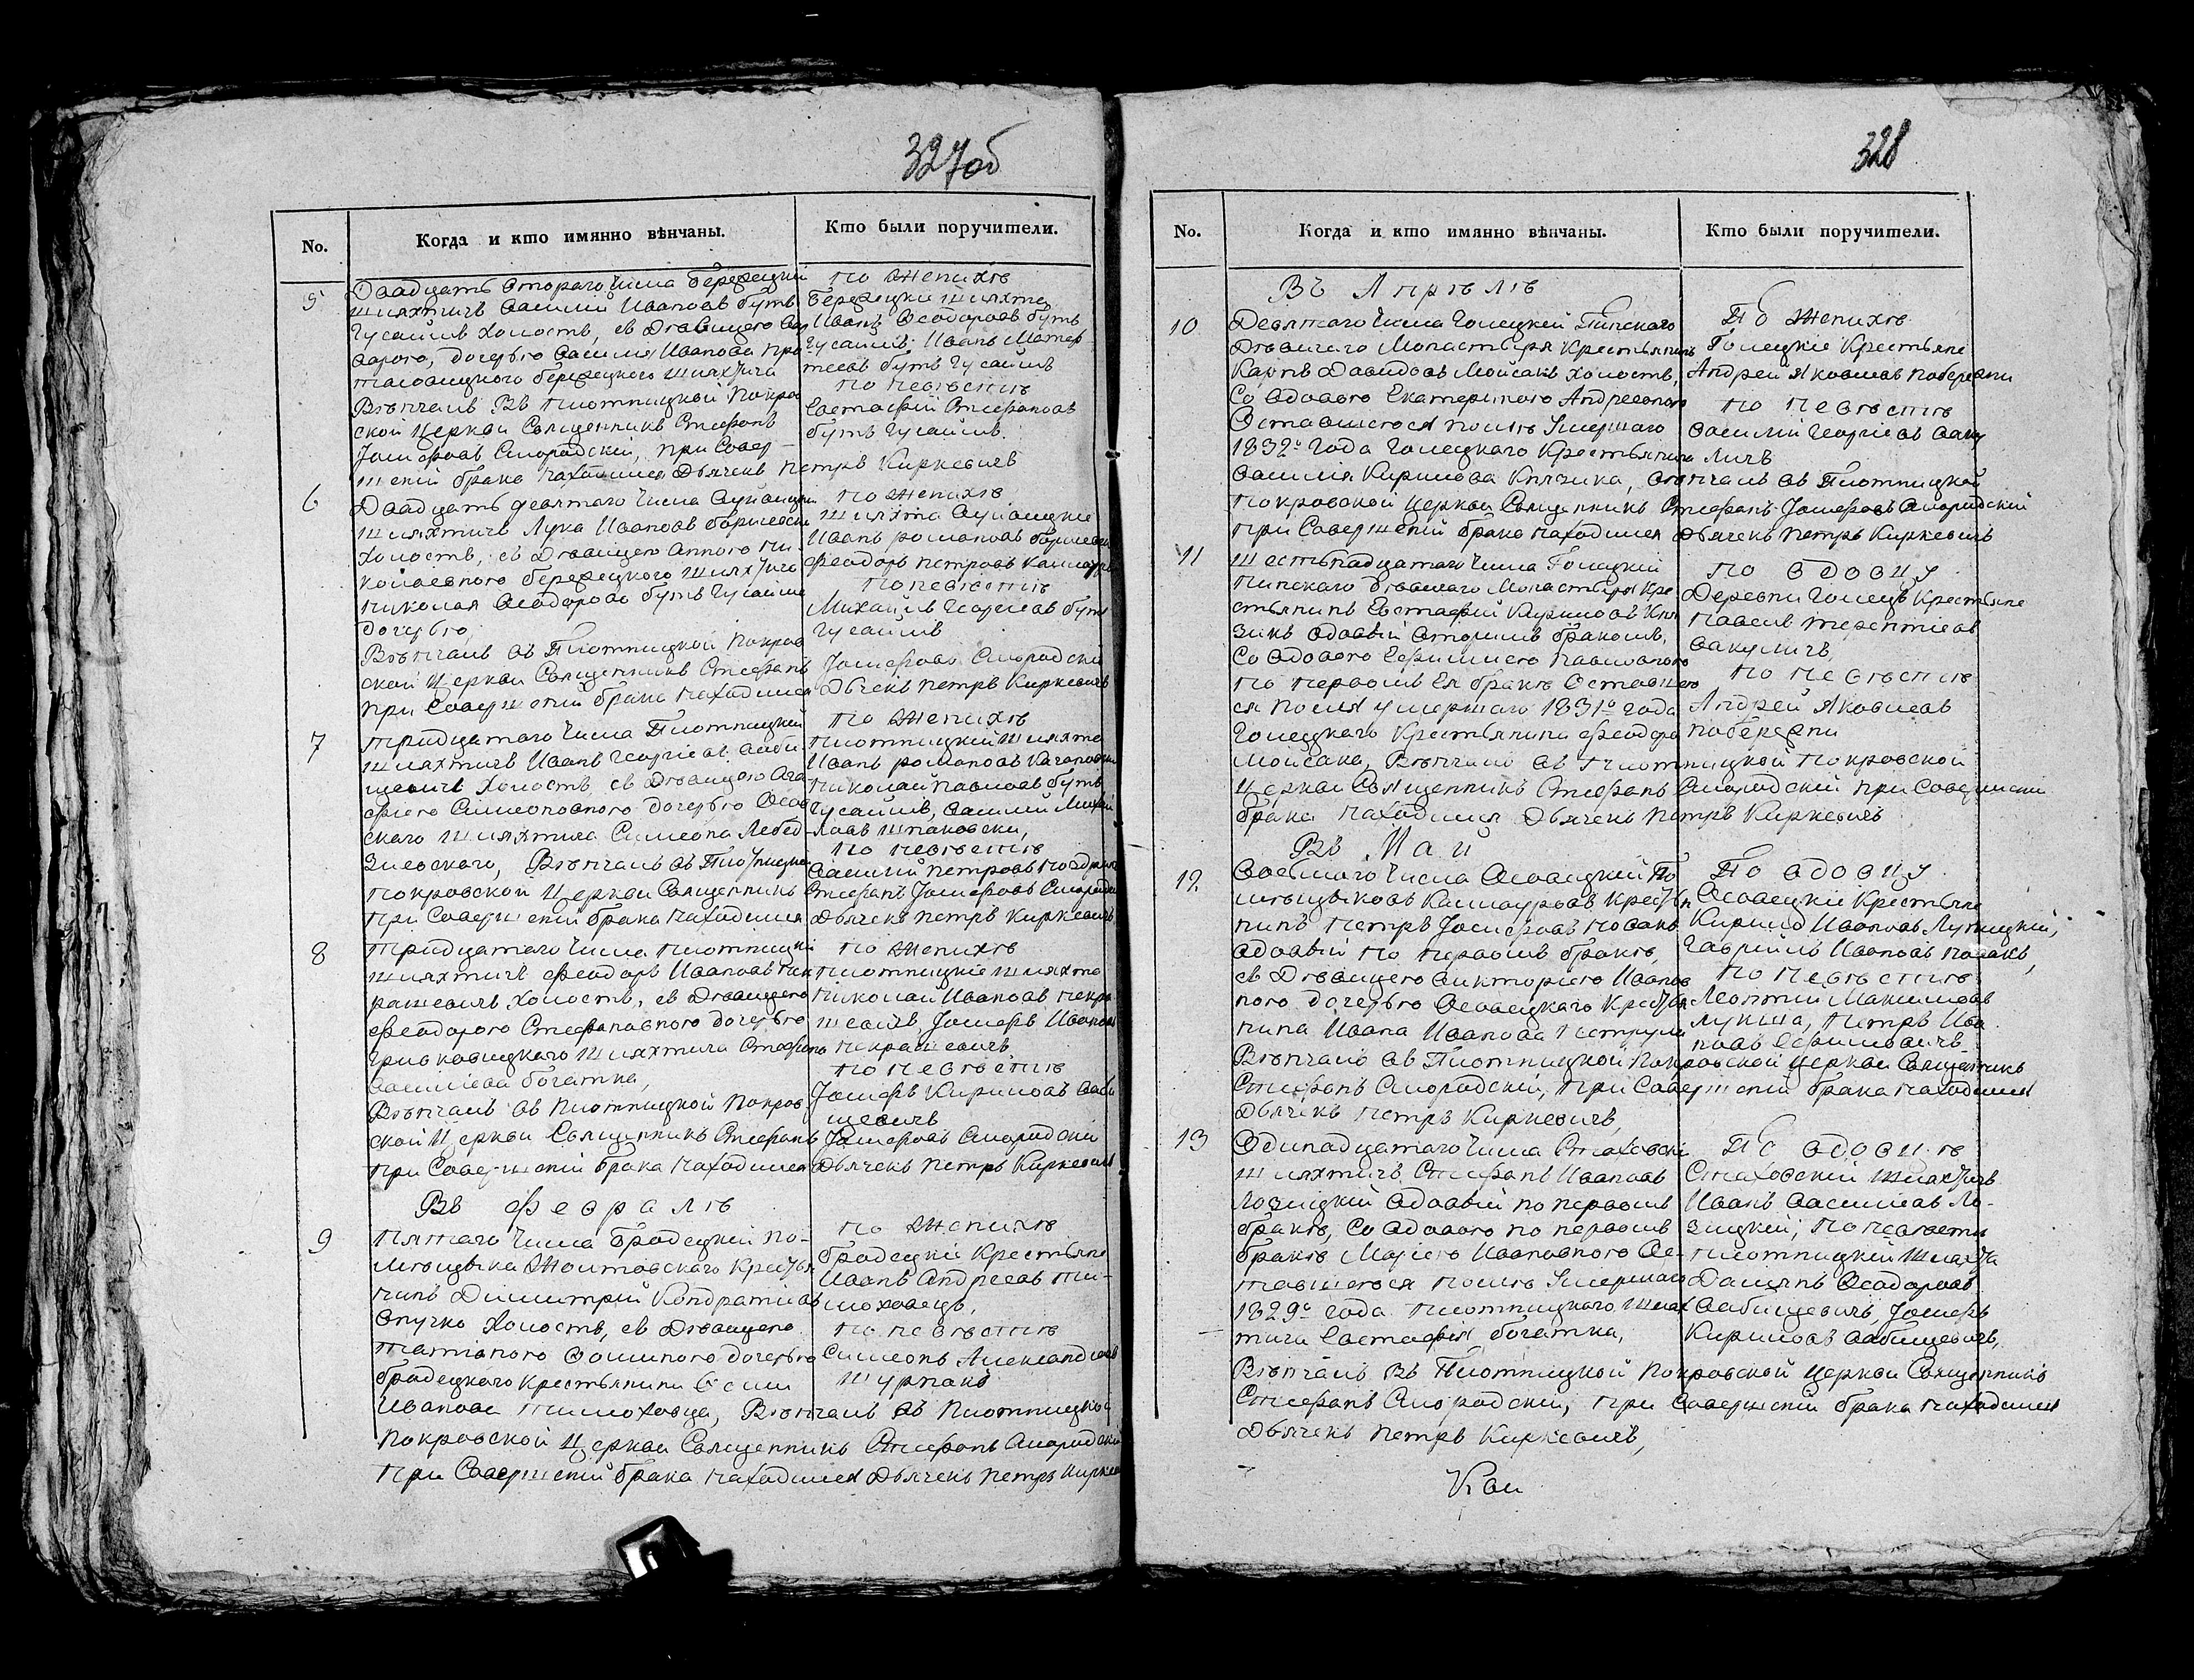 327об
No.
Когда и кто имянно вѣнчаны.
Кто были поручители.
5
Двадцать втораго числа Бережецкій
шляхтичъ Василій Ивановъ Бутъ
Гусаимъ холостъ, съ Дѣвицею Вар
варою, дочерью Василія Иванова
Бережецкаго шляхтича
Вѣнчалъ Въ Плотницкой Покров
ской Церкви Священникъ Стефанъ
Іосифовъ Смородскій, при Совер
шеніи брака находился Дьячекъ Петръ Киркевичъ
по Женихѣ
Бережецкіи шляхта
Иванъ Ѳеодоровъ Бутъ
Гусаимъ. Иванъ Матѳ
еевъ бутъ Гусаимъ
по Невѣстѣ
Евстафій Стефановъ
бутъ Гусаимъ.
6
Двадцать девятаго числа
шляхтичъ Лука Ивановъ
холостъ, съ Дѣвицею Анною Ни
колаевною бережецкаго шляхтича
Николая Ѳеодорова бутъ Гусаима
дочерью,
Вѣнчалъ въ Плотницкой Покров
ской Церкви Священникъ Стефанъ
при Совершеніи брака находился
по Женихѣ
шляхта
Иванъ романовъ
Феодоръ Петровъ
По невѣстѣ
Михаилъ Георгіевъ бутъ
Гусаимъ
Іосифовъ Смородскій
Дьячекъ Петръ Киркевичъ
7
тридцатаго числа Плотницкій
шляхтичъ Иванъ Георгіевъ Баби
щевичъ холостъ, съ Дѣвицею Ага
фіею Симеоновною дочерью Осов
скаго шляхтича Симеона Лебед
зиевскаго, Вѣнчалъ въ Плотницкой
покровской Церкви Священникъ
при Совершеніи брака находился
по Женихѣ
Плотницкій шляхта
Иванъ романовъ Качановски
Николай Павловъ бутъ
Гусаимъ, Василій Михай
ловъ Шпаковски,
по невѣстѣ
Василій Петровъ
Стефанъ Іосифовъ Смородскій
Дьячекъ Петръ Киркевичъ
8
тридцатаго числа Плотницкій
шляхтичъ Феодоръ Ивановъ Нек
рашевичъ холостъ, съ Дѣвицею
Феодорою Стефановною дочерью
Гривковицкаго шляхтича Стефана
Василіева богатка,
Вѣнчалъ въ Плотницкой Покров
ской Церкви Священникъ Стефанъ
при Совершеніи брака находился
по Женихѣ
Плотницкіе шляхта
Николай Ивановъ Некра
шевичъ, Іосифъ Ивановъ
Некрашевичъ
по Невѣстѣ
Іосифъ Кириловъ Баби
щевичъ
Іосифовъ Смородскій
Дьячекъ Петръ Киркевичъ
Въ Февралѣ
9
Пятаго числа Бродецкій по-
мѣщика Жолтовскаго Крестья
нинъ Димитрій Кондратіевъ
холостъ, съ Дѣвицею
татіаною дочерью
бродецкаго крестьянина
Иванова тимоховца, Вѣнчалъ въ Плотницкой
Покровской Церкви Священникъ Стефанъ Смородскій
при Совершеніи брака находился Дьячекъ Петръ Киркев
по Женихѣ
бродецкіи Крестьяне
Иванъ Андреевъ ти-
моховецъ,
по невѣстѣ
Симеонъ Александровъ
328
No.
Когда и кто имянно вѣнчаны.
Кто были поручители.
Въ Апрѣлѣ
10
Девятаго числа Голецкій Пинскаго
Дѣвичаго Монастыря Крестьянинъ
Карпъ Давидовъ Мойсакъ холостъ,
Со вдовою Екатериною Андреевною
Оставшеюся послѣ Умершаго
1832го Года Голецкаго Крестьянина
Василія Кирилова Князика, вѣнчалъ въ Плотницкой
Покровской Церкви Священникъ Стефанъ Іосифовъ Смородскій
при Совершеніи брака находился Дьячекъ Петръ Киркевичъ
По Женихѣ
Голецкіе Крестьяне
Андрей Яковлевъ побережни
По Невѣстѣ
Василій Георгіевъ Ваку
личъ
11
шестьнадцатаго числа Голецкій
Пинскаго дѣвичаго Монастыря Кре
стьянинъ Евстафій Кириловъ Кня
зикъ вдовый вторымъ бракомъ,
Со вдовою Ефиміею Павловною
по первомъ Ея бракѣ Оставшею
ся послѣ умершаго 1831го года
Голецкаго Крестьянина Феодора
Мойсака, Вѣнчалъ въ Плотницкой Покровской
Церкви Священникъ Стефанъ Смородскій при Совершении
брака находился Дьячекъ Петръ Киркевичъ
По вдовцу
Деревни Голецъ Крестьяне
Павелъ терентіевъ
Вакуличъ,
По невѣстѣ
Андрей Яковлевъ
побережни
Въ Маи
12
Восьмаго числа Осовецкій По
мѣщиковъ Крестья
нинъ Петръ Іосифовъ Новакъ
вдовый по первомъ бракѣ,
съ Дѣвицею Викторіею Иванов
ною дочерью Осовецкаго Крестья
нина Ивана Иванова
Вѣнчалъ въ Плотницкой Покровской Церкви Священникъ
Стефанъ Смородскій, при Совершеніи брака находился
Дьячекъ Петръ Киркевичъ,
По вдовцу
Осовецкіе Крестьяне
Кирилъ Ивановъ Лутицкій,
Гавріилъ Ивановъ Новакъ,
по Невѣстѣ
Леонтій Максимовъ
лукша, Петръ Ива
новъ Ефимовичъ
13
Одинадцатаго числа Стаховскі
шляхтичъ Стефанъ Ивановъ
Лозицкій вдовый по первомъ
бракѣ, Со вдовою по первомъ
бракѣ Маріею Ивановною Ос-
тавшеюся послѣ Умершаго
1829го года Плотницкаго шлях
тича Евстафія богатка,
Вѣнчалъ Въ Плотницкой Покровской Церкви Священникъ
Стефанъ Смородскій, при Совершеніи брака находился
Дьячекъ Петръ Киркевичъ,
По вдовцѣ
Стаховскій шляхтичъ
Иванъ Василіевъ Ло-
зицкій; по невѣсти
плотницкій шляхта
Даміянъ Ѳеодоровъ
Бабищевичъ, Іосифъ
Кириловъ Бабищевичъ,